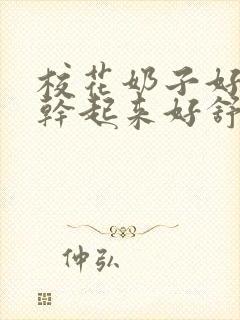 校花奶子好
幹起来好舒
仲弘